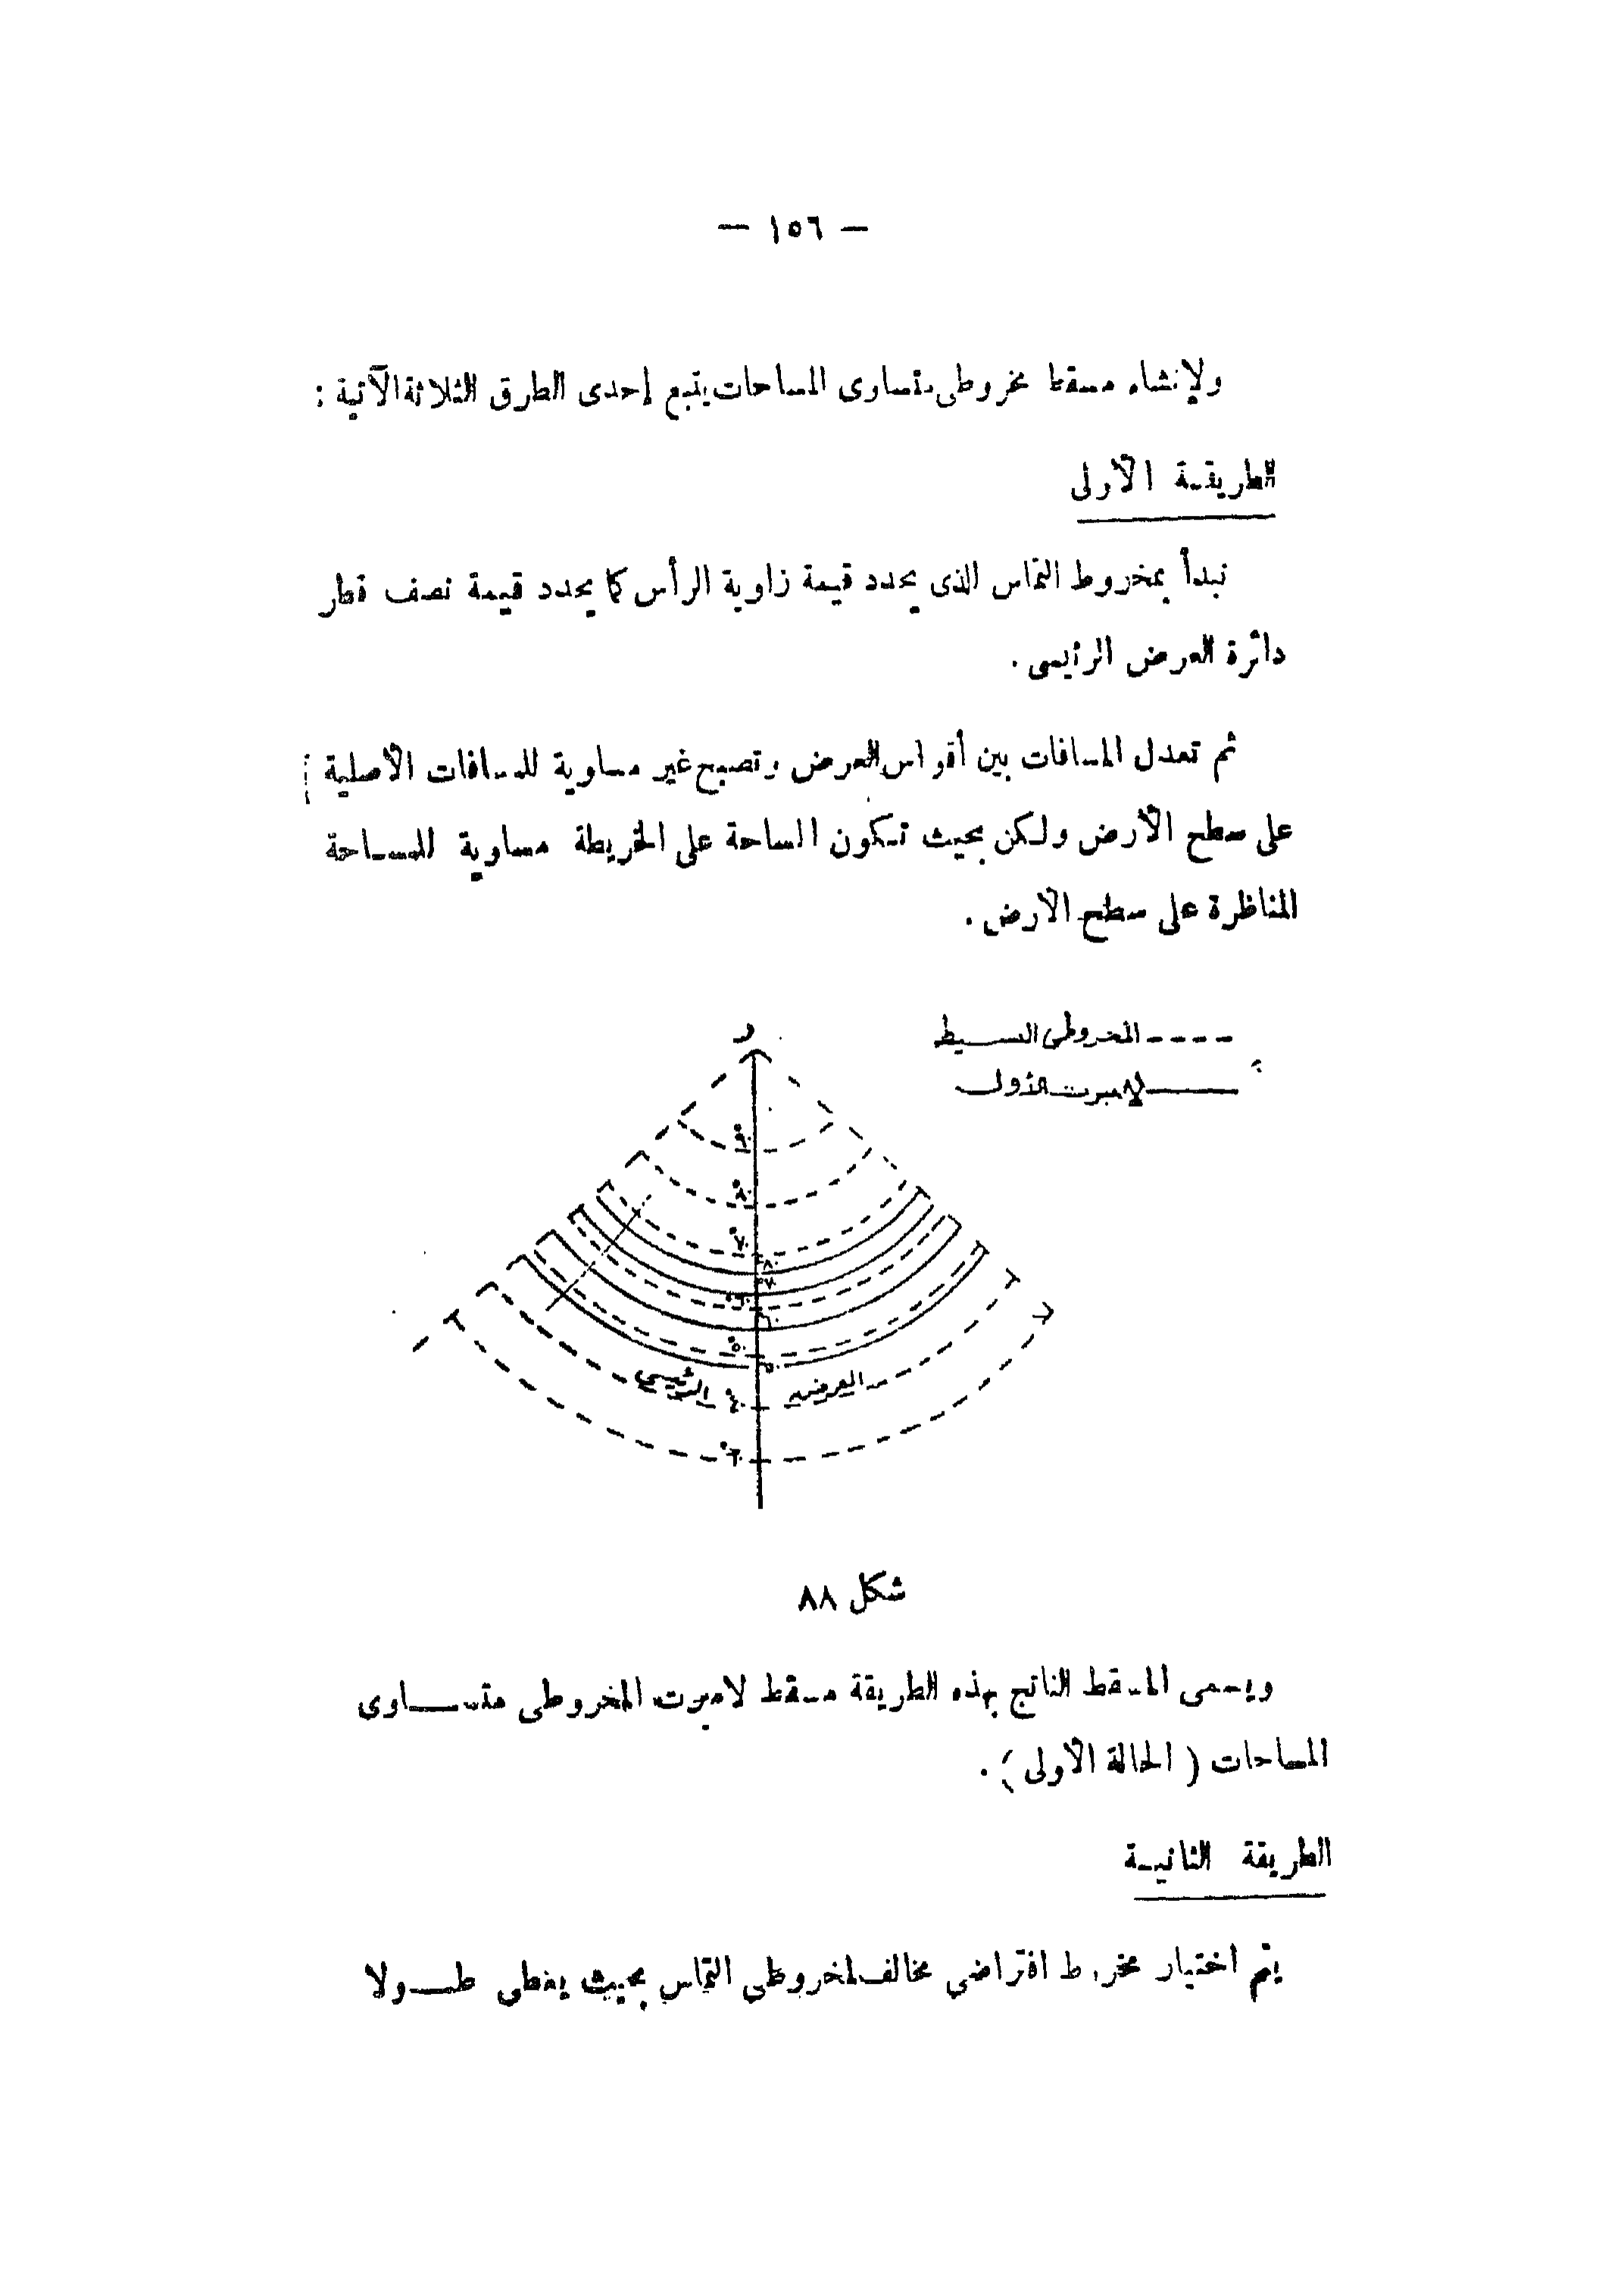 — ١٥٦ —
ولإنشاء مسقط مخروطى متساوى المساحات يتبع إحدى الطرق الثلاثة الآتية :
الطريقة الأولى
نبدأ بمخروط التماس الذى يحدد قيمة زاوية الرأس كما يحدد قيمة نصف قطر
دائرة العرض الرئيسى .
ثم تعدل المسافات بين أقواس العرض وتصبح غير مساوية للمسافات الأصلية
على سطح الأرض ولكن بحيث تكون المساحة على الخريطة مساوية للمساحة
المناظرة على سطح الأرض .
المخروطى البسيط
لامبرت الأول
ر
٩٠°
٨٠°
٧٠°
٨٠
٧٠
٦٠°
٦٠
٥٠°
٥٠
العرض الرئيسى ٤٠
٣٠°
شكل ٨٨
ويسمى المسقط الناتج بهذه الطريقة مسقط لامبرت المخروطى متساوى
المساحات ( الحالة الأولى ) .
الطريقة الثانية
يتم اختيار مخروط افتراضى مخالف لمخروطى التماس بحيث يغطى طولا